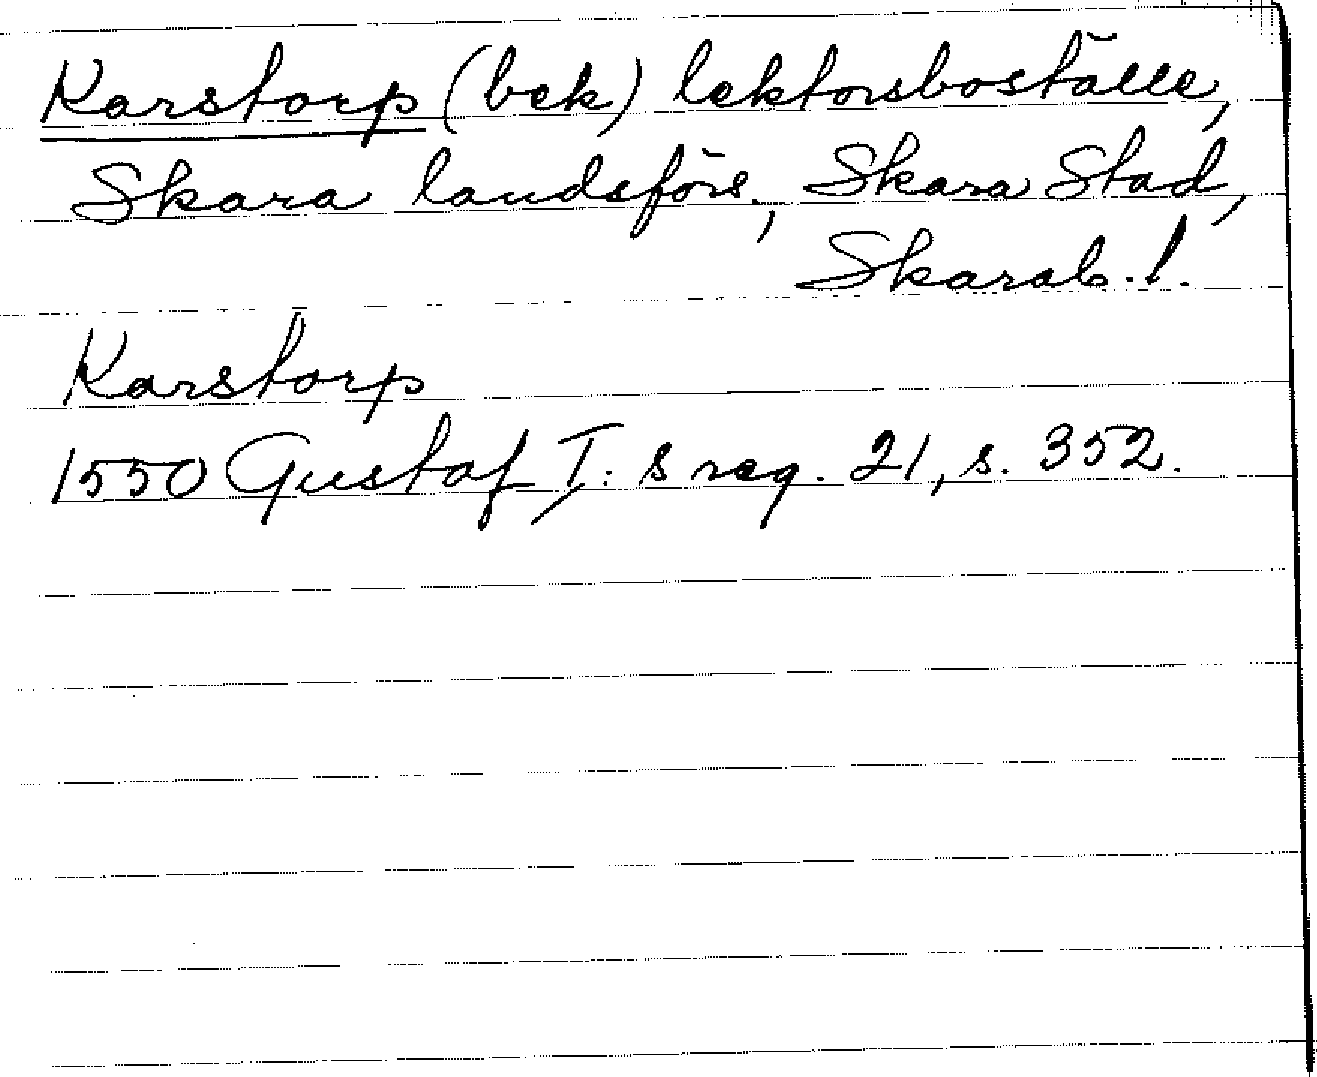 Karstorp (bek) lektorsboställe,
Skara landsförs., Skara Stad,
Skarab. l.
Karstorp
1550 Gustaf I: s reg. 21, s. 352.